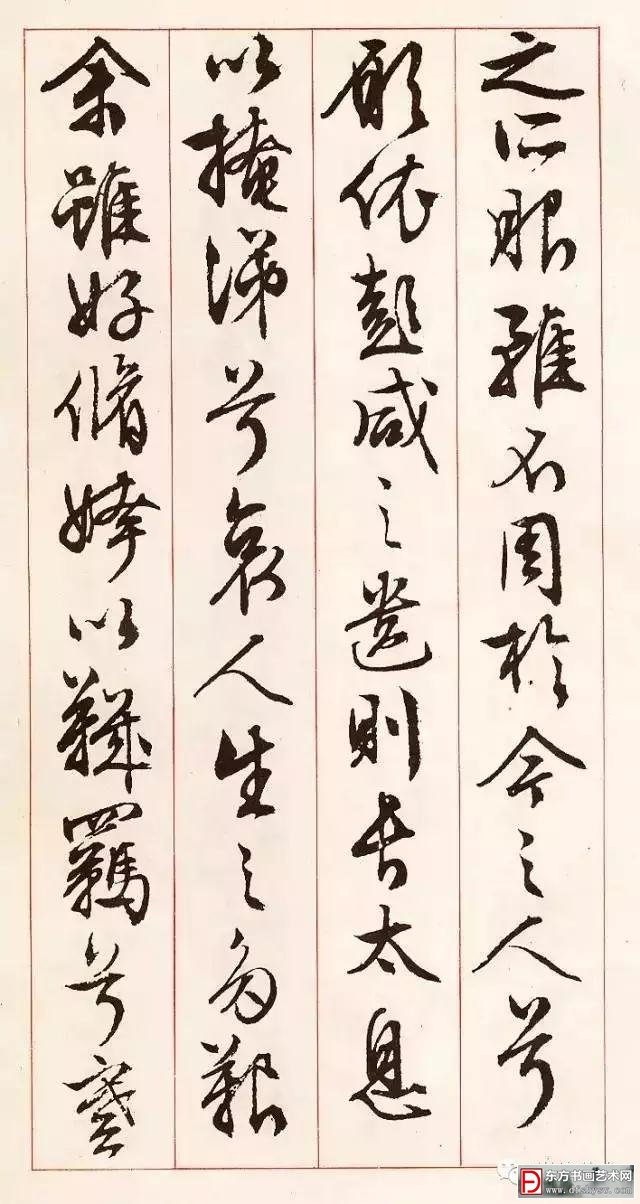 之所服雖不周於今之人兮
願依彭咸之遺則長太息
以掩涕兮哀人生之多艱
余雖好脩姱以鞿羈兮謇
东方书画艺术网